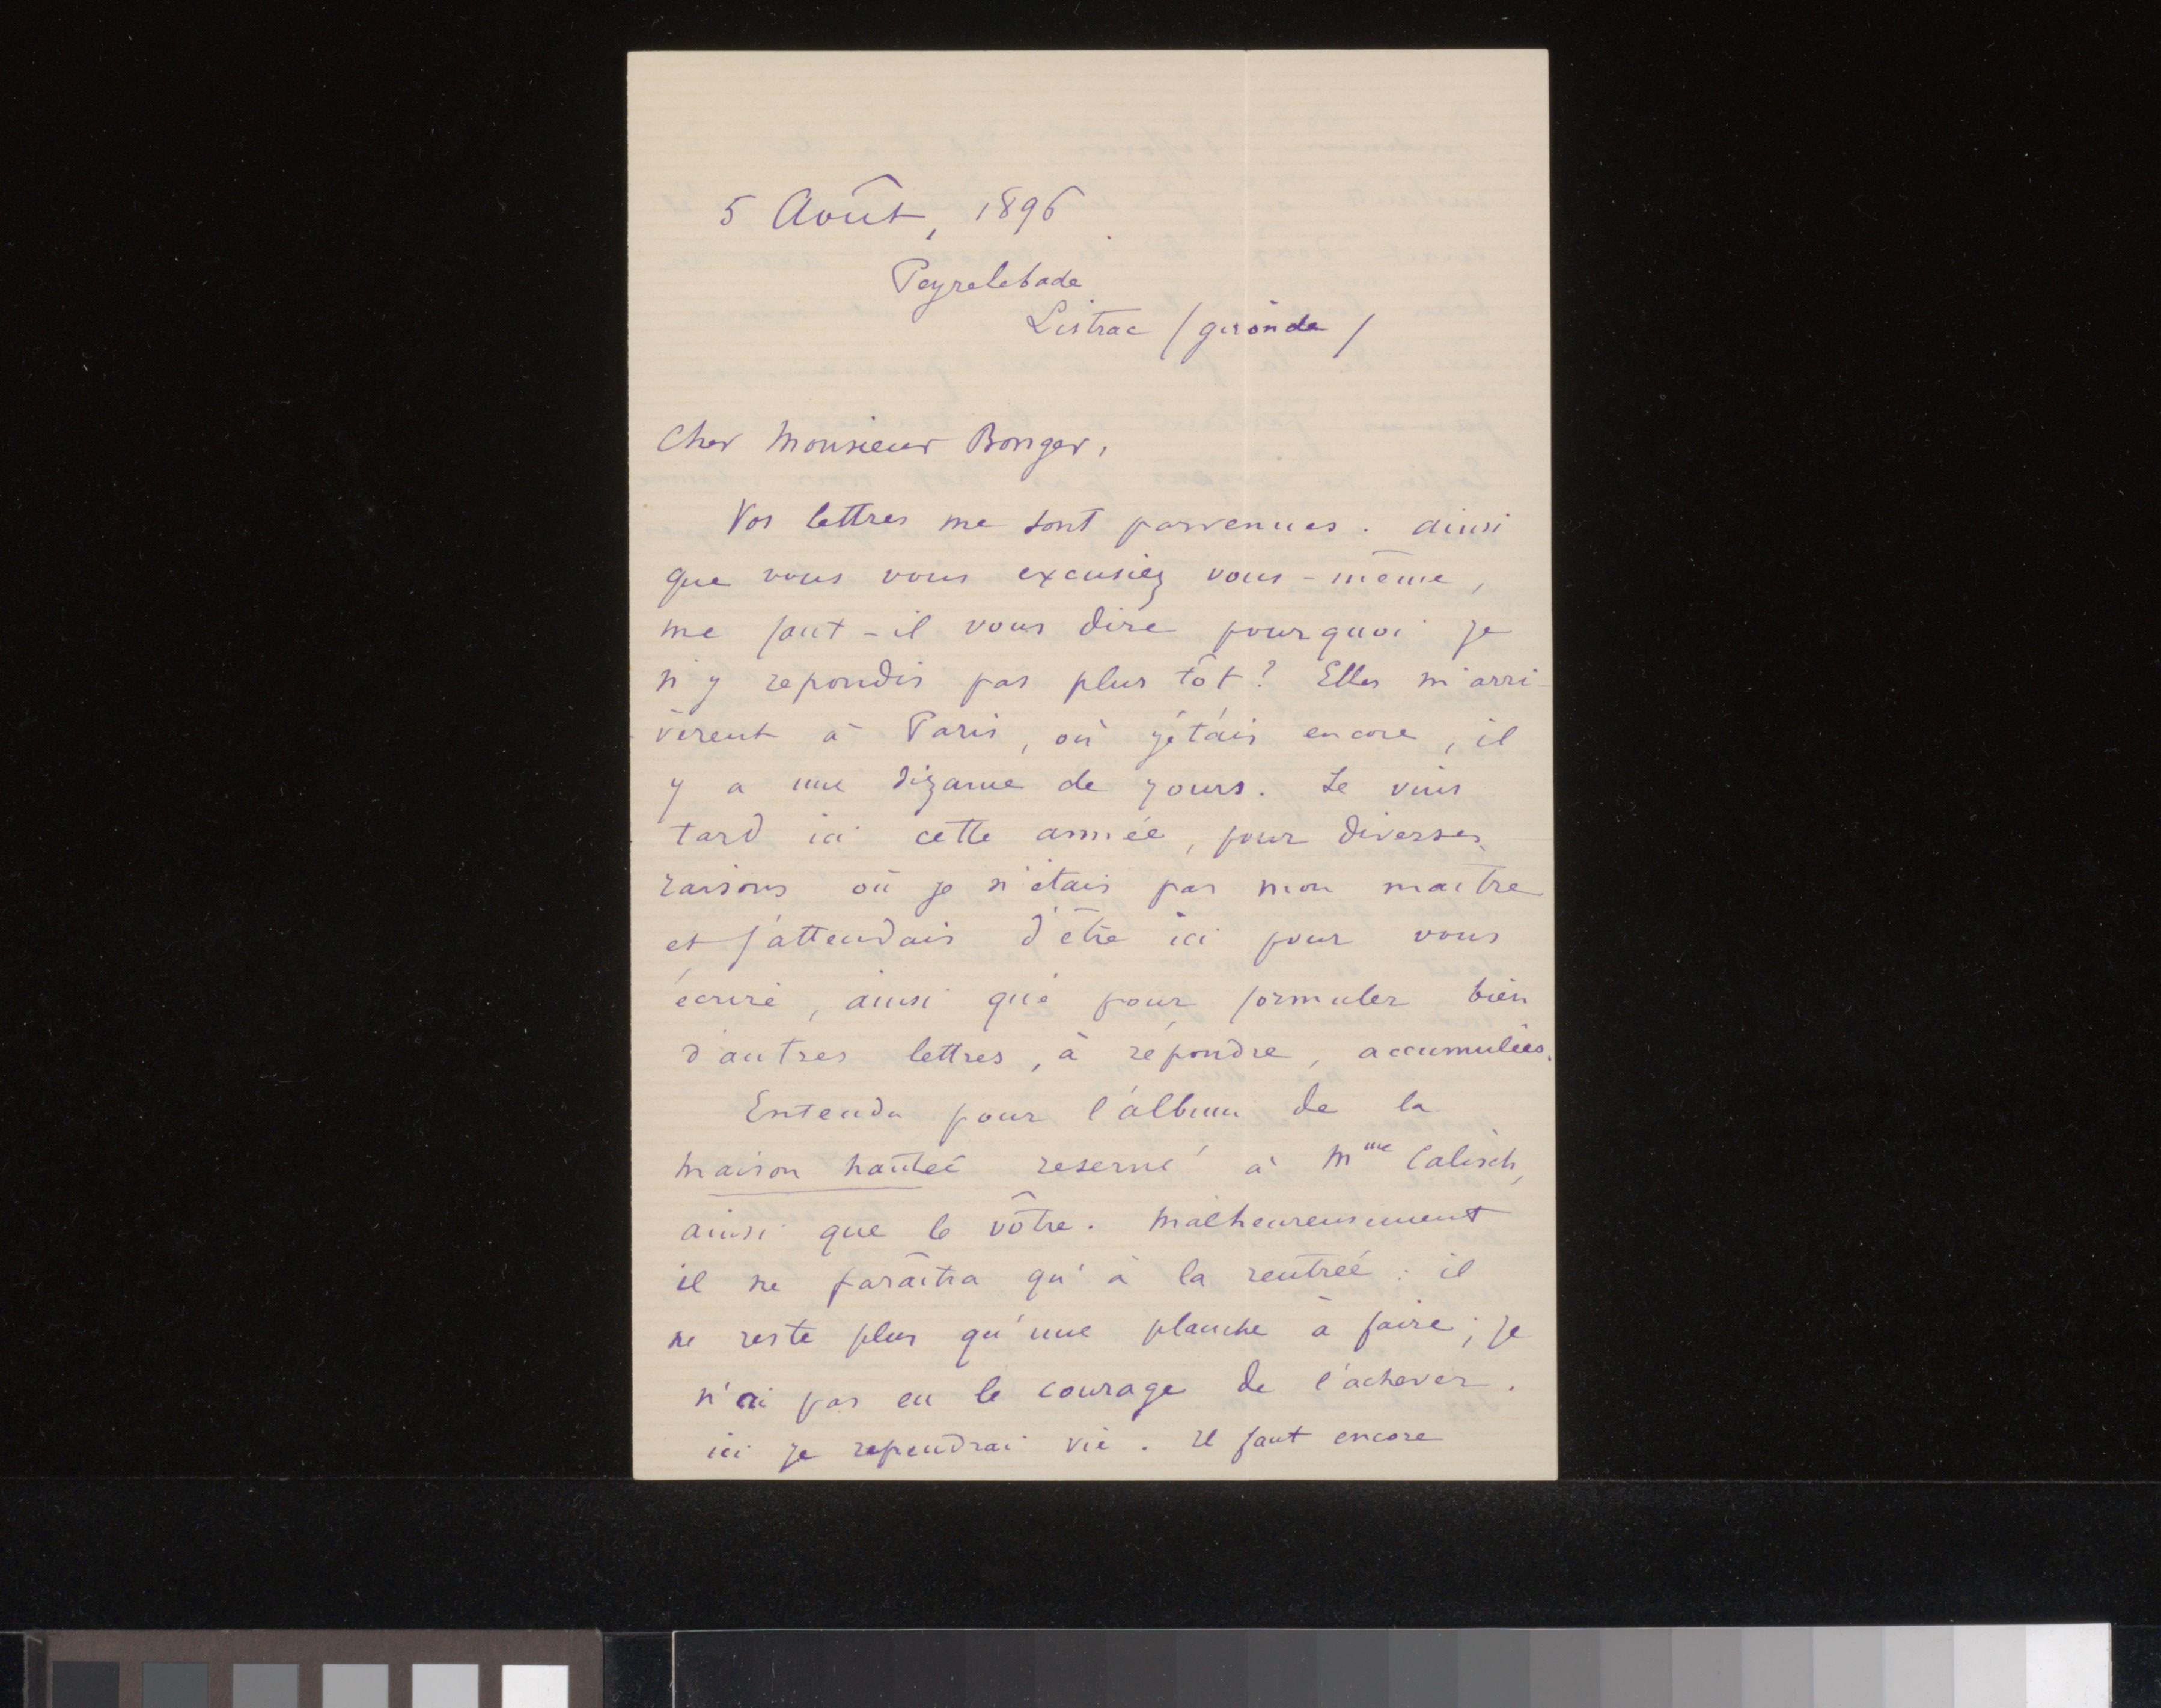 5 Août, 1896
Peyrelebade
Listrac / gironde /
Cher Monsieur Bonger,
Vos lettres me sont parvenues. ainsi
que vous vous excusiez vous-même,
me faut-il vous dire pourquoi je
n'y repondis pas plus tôt? Elles m'arri-
vèrent à Paris, où j'étais encore, il
y a une dizaine de jours. Je vins
tard ici cette année, pour diverses
raisons où je n'étais pas mon maître
et j'attendais d'être ici pour vous
écrire, ainsi que pour formuler bien
d'autres lettres, à répondre, accumulées.
Entendu pour l'album de la
maison hantée reservé à Mme Calisch,
ainsi que le vôtre. Malheureusement
il ne paraîtra qu'à la rentrée: il
ne reste plus qu'une planche à faire; je
n'ai pas eu le courage de l'achever.
ici je reprendrai vie. Il faut encore